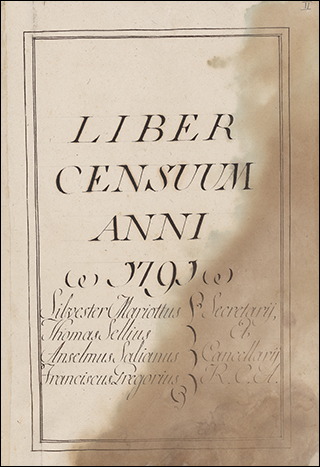 LIBER
CENSUUM
ANNI
1791
Silvester Mariottus Secretarij,
Thomas Sellius &
Anselmus Salianus Cancellarij
Franciscus Gregorius R. C. A.